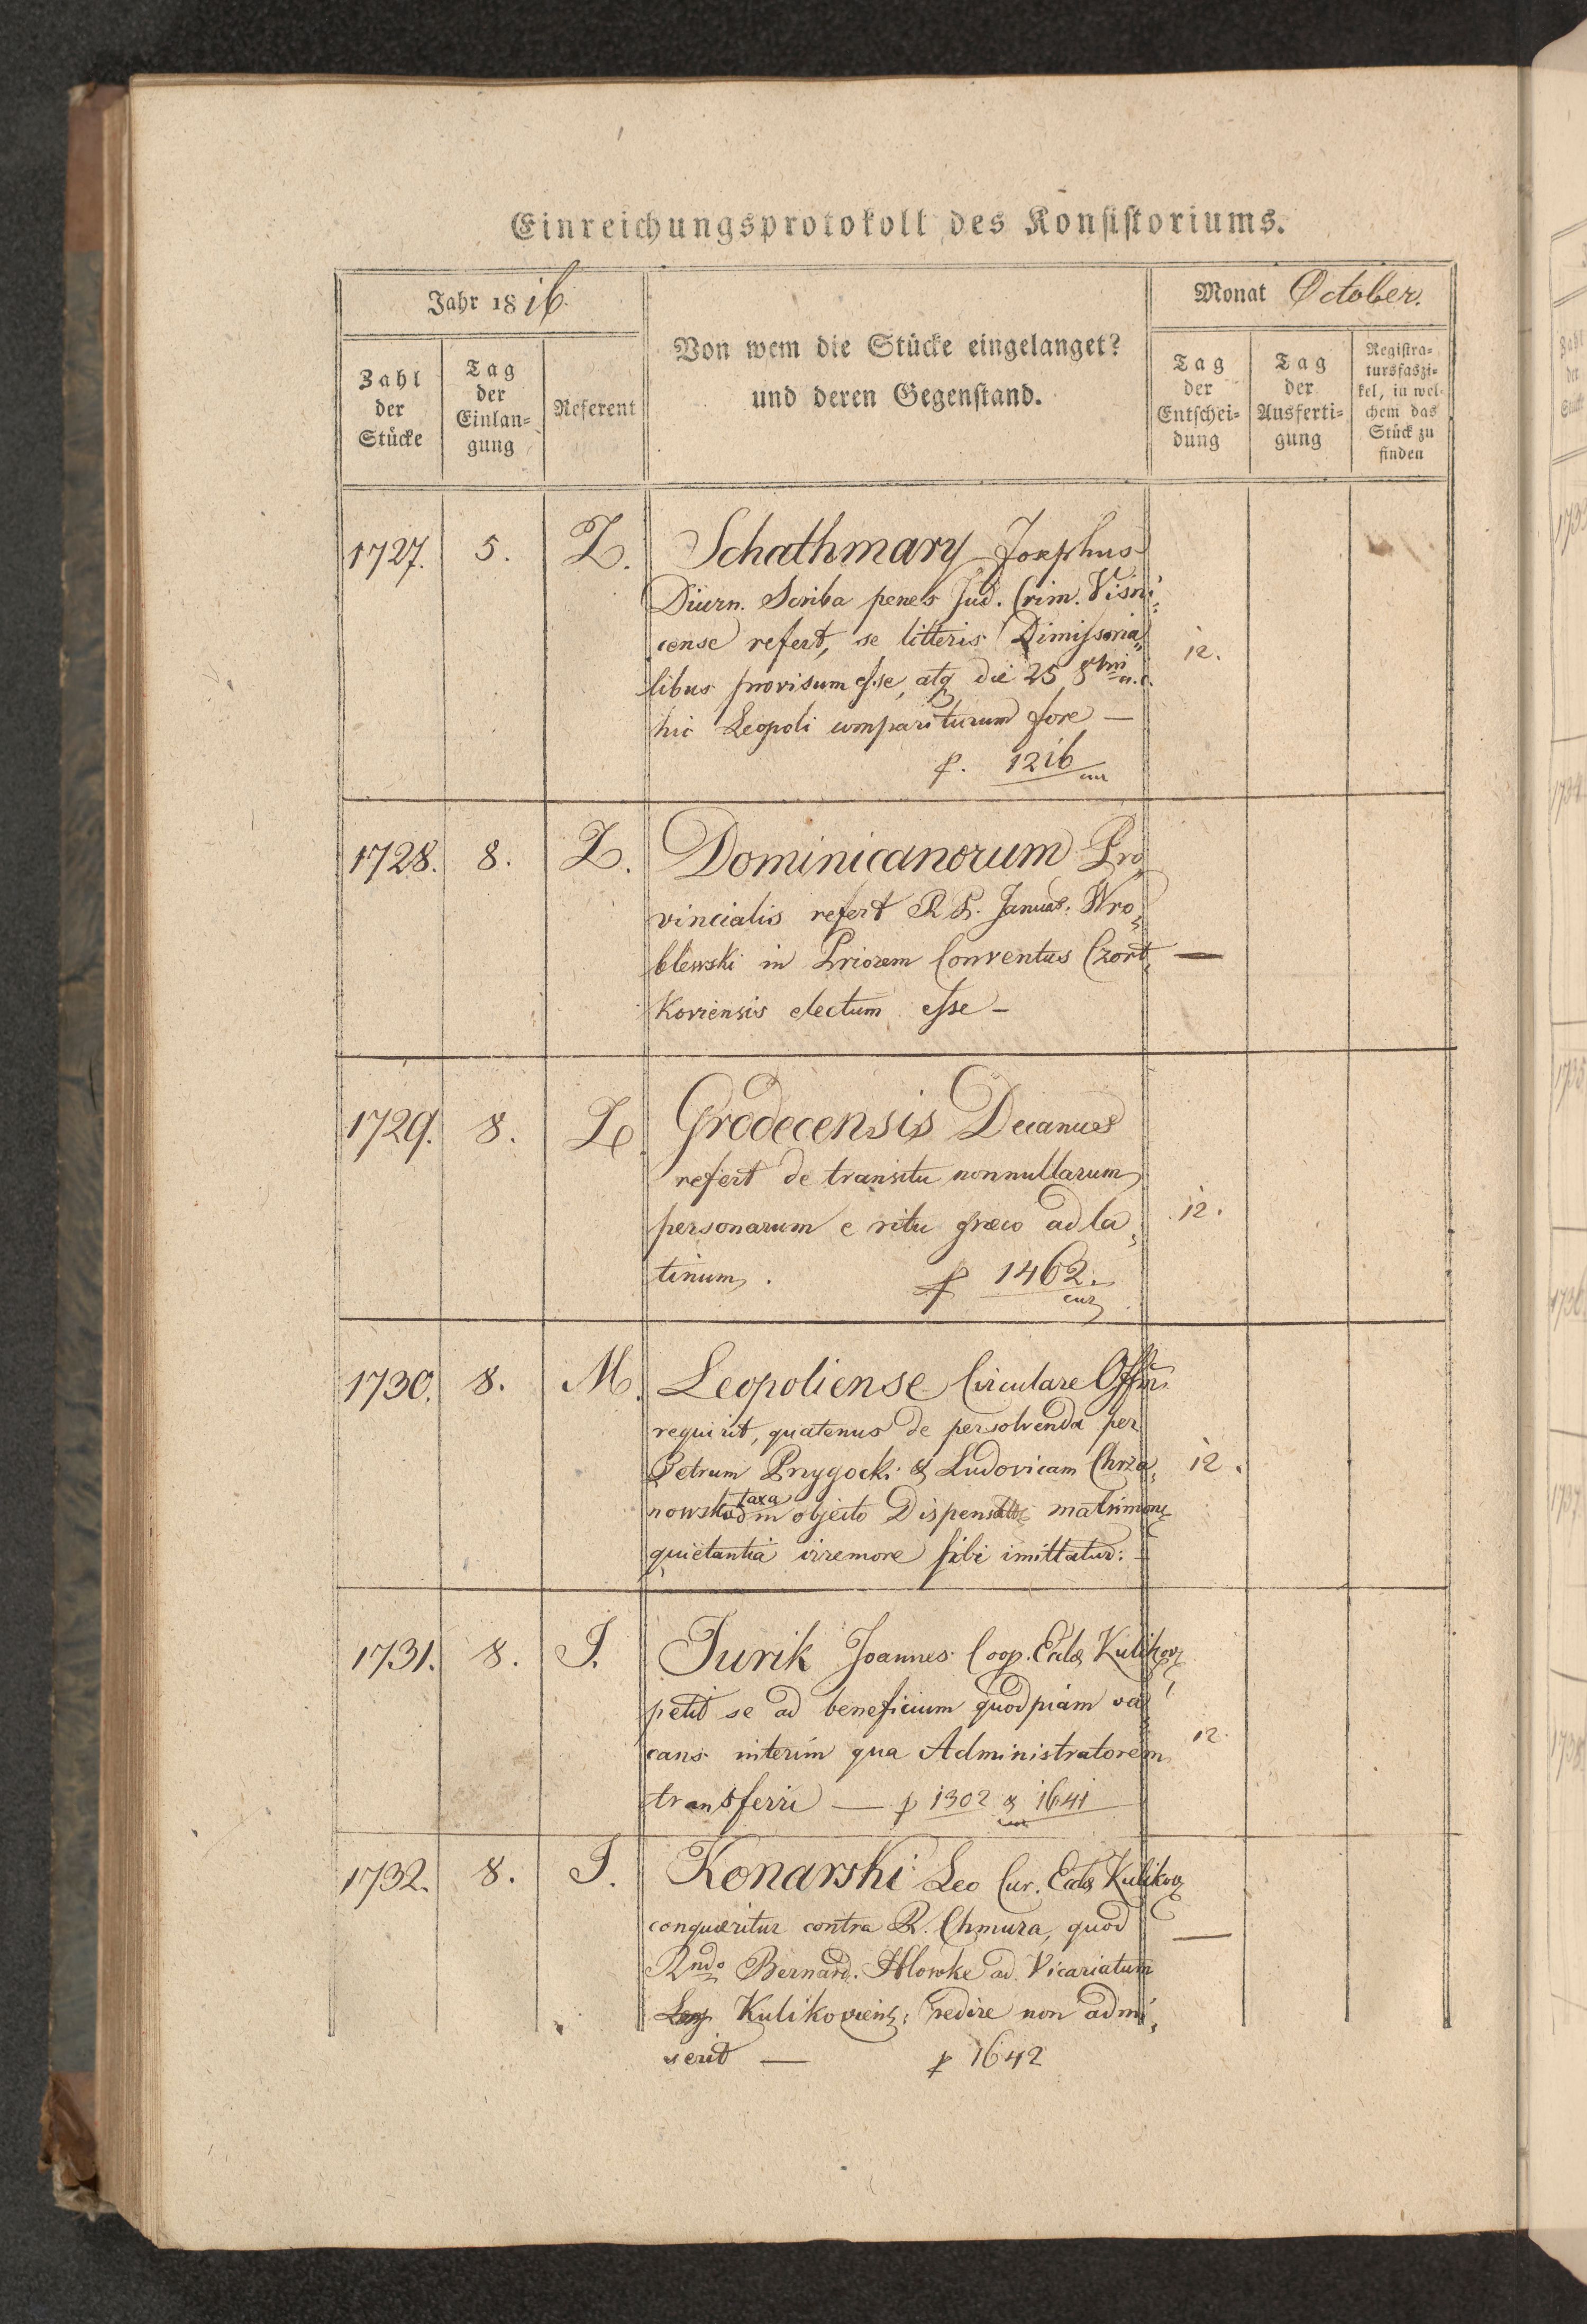 Einreichungsprotokoll des Konsistoriums.
Jahr 1816.
Monat October.
Von wem die Stücke eingelanget?
und deren Gegenstand.
Zahl
der
Stücke
Tag
der
Einlan=
gung
Referent
Tag
der
Entschei=
dung
Tag
der
Ausferti=
gung
Registra=
tursfaszi=
kel, in wel=
chem das
Stück zu
finden
1727. 5. Z. Schathmary Josephus
Diurn. Scriba penes Jud. Crim. Visni„
cense refert, se litteris Dimissoria„
12.
libus provisum esse, atq die 25 8bri a. c.
hic Leopoli compariturum fore —
p. 1216
1728. 8. Z. Dominicanorum Pro„
vincialis refert R P. Januar. Wro„
blewski in Priorem Conventus Czort„ —
koviensis electum esse —
1729. 8. Z. Grodecensis Decanus
refert de transitu nonnullarum
personarum e ritu græco ad la„ 12.
tinum. p 1462.
cur
1730. 8. M. Leopoliense Circulare Offm
requirit, quatenus de persolvenda per
Petrum Przygocki & Ludovicam Chrza„ 12.
taxa
objecto Dispens matrimon
quietantia irremore sibi imittatur: —
1731. 8. J. Jurik Joannes Coop. Eccl Kulikov
petit se ad beneficium quodpiam va„
cans interim qua Administratorem 12.
transferri — p 1302 & 1641
1732. 8. J. Konarski Leo Cur. Eccl Kulikov
conquæritur contra R. Chmura, quod —
Rndo Bernard. Hlowke ad Vicariatum
Kulikoviens: redire non admi„
serit — p 1642